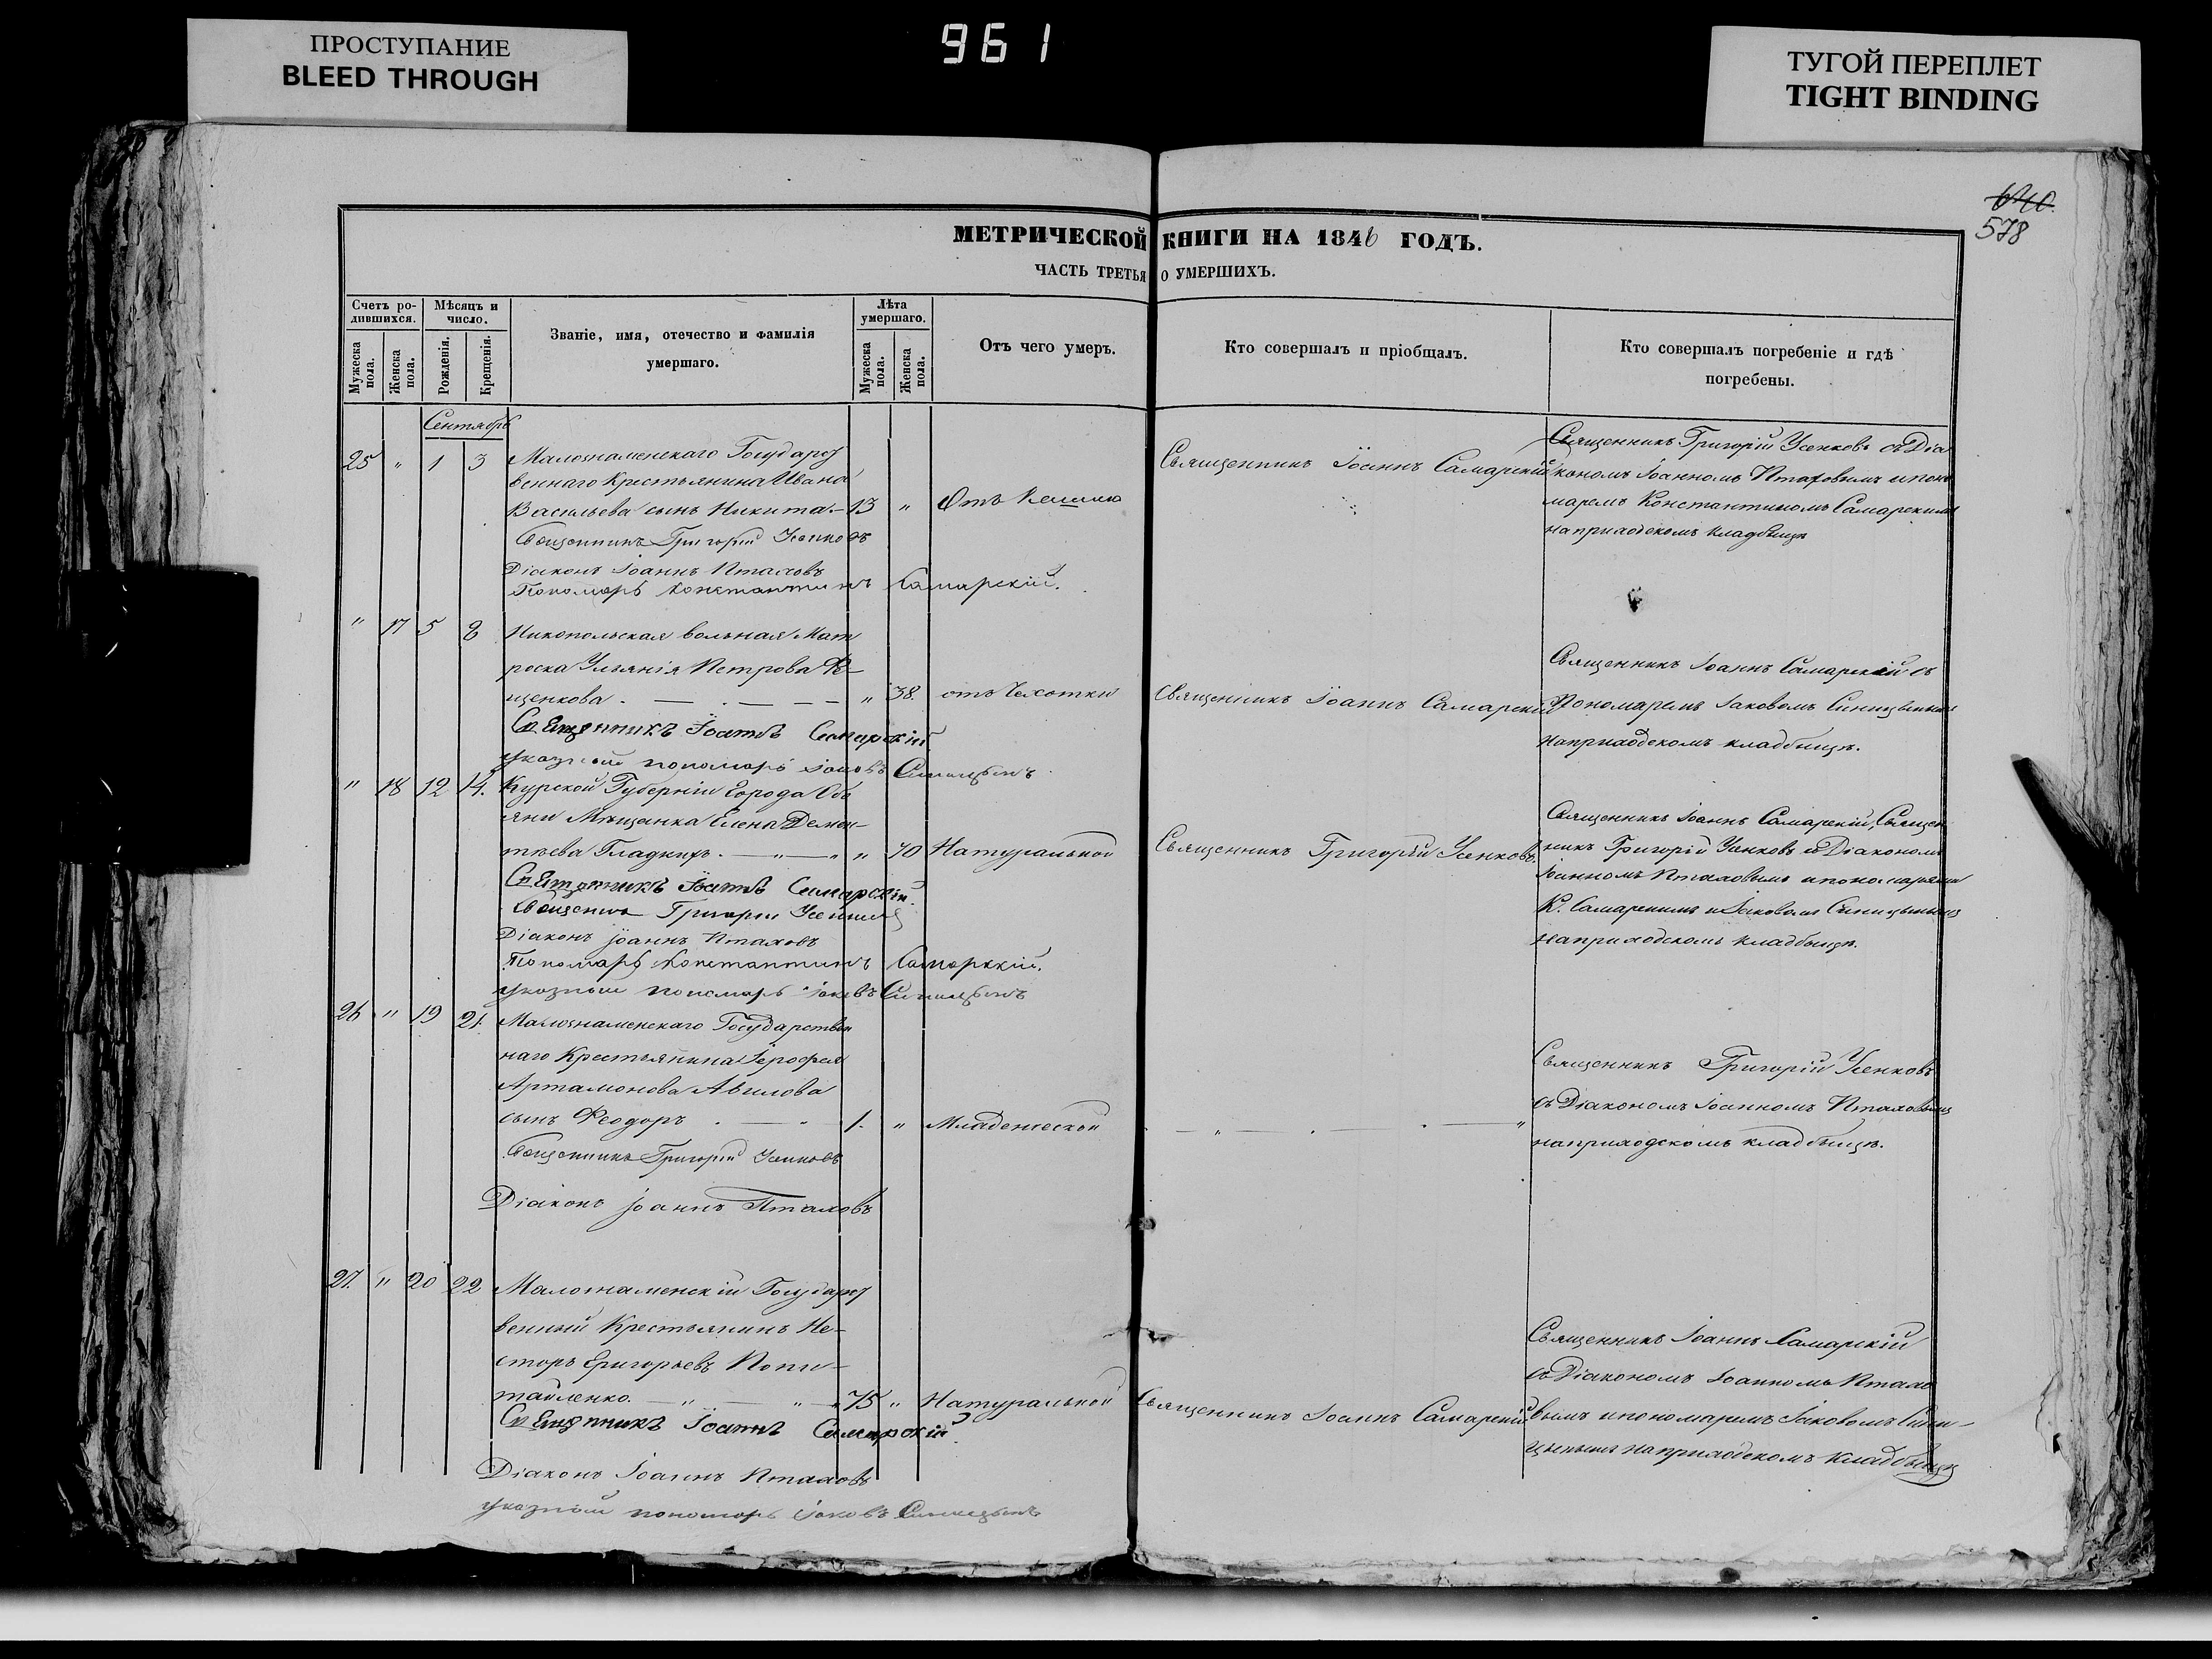 ПРОСТУПАНИЕ
BLEED THROUGH
961
ТУГОЙ ПЕРЕПЛЕТ
TIGHT BINDING
640.
578
МЕТРИЧЕСКОЙ КНИГИ НА 1846 ГОДЪ.
ЧАСТЬ ТРЕТЬЯ О УМЕРШИХЪ.
Счетъ ро-
дившихся.
Мужеска пола.
Женска пола.
Мѣсяцъ и
число.
Рожденія.
Крещенія.
Званіе, имя, отечество и фамилія
умершаго.
Лѣта
умершаго.
Мужеска пола.
Женска пола.
Отъ чего умеръ.
Кто совершалъ и пріобщалъ.
Кто совершалъ погребеніе и гдѣ
погребены.
Сентябрь
25 " 1 3 Малознаменскаго Государст
веннаго Крестьянина Ивана
Васильева сынъ Никита - 13 " Отъ Кашлю
Священникъ Іоаннъ Самарскій
Священникъ Григорій Усенковъ съ Діа
кономъ Іоанномъ Птаховымъ и поно
маремъ Константиномъ Самарскимъ
на приходскомъ кладбищѣ
Священникъ Григорій Усенковъ
Діаконъ Іоаннъ Птаховъ
Пономарь Константинъ Самарскій.
" 17 5 8 Никопольская вольная Мат
роска Ульянія Петрова
щенкова. — . — — — " 38. отъ Чахотки
Священникъ Іоаннъ Самарскій
Священникъ Іоаннъ Самарскій съ
Пономаремъ Іаковомъ Синицынымъ
на приходскомъ кладбищѣ.
Священникъ Іоаннъ Самарскій
указный пономарь Іаковъ Синицынъ
" 18 12 14. Курской Губерніи Города Обо
яни Мѣщанка Елена Демен-
тьева Гладкихъ. — " — " " 70 Натуральной
Священникъ Григорій Усенковъ.
Священникъ Іоаннъ Самарскій, Священ
никъ Григорій Усенковъ съ Діакономъ
Іоанномъ Птаховымъ и пономарями
К. Самарскимъ и Іаковомъ Синицынымъ
на приходскомъ кладбищѣ.
Священникъ Іоаннъ Самарскій.
Священникъ Григорій Усенковъ
Діаконъ Іоаннъ Птаховъ
Пономарь Константинъ Самарскій.
указный пономарь Іаковъ Синицынъ
26 " 19 21. Малознаменскаго Государствен
наго Крестьянина Іерофея
Артамонова Авилова
сынъ Феодоръ . — " — 1. " Младенческой
Священникъ Григорій Усенковъ
съ Діакономъ Іоанномъ Птаховымъ
на приходскомъ кладбищѣ.
Священникъ Григорій Усенковъ
Діаконъ Іоаннъ Птаховъ
27. " 20 22 Малознаменскій Государст
венный Крестьянинъ Не-
сторъ Григорьевъ Попи-
тайленко. — " — " — " 75 " Натуральной
Священникъ Іоаннъ Самарскій
Священникъ Іоаннъ Самарскій
съ Діакономъ Іоанномъ Птахо
вымъ и пономаремъ Іаковомъ Сини-
цынымъ на приходскомъ кладбищѣ
Священникъ Іоаннъ Самарскій
Діаконъ Іоаннъ Птаховъ
указный пономарь Іаковъ Синицынъ